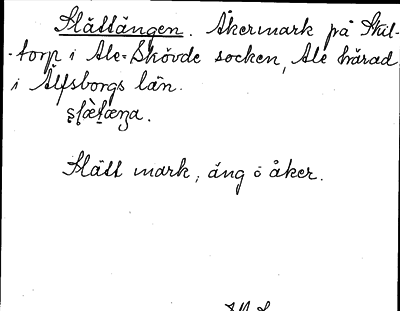 Slättängen. Åkermark på Skil-
-torp i Ale-Skövde socken, Ale härad
i Älfsborgs län.

Slätt mark, äng o åker.